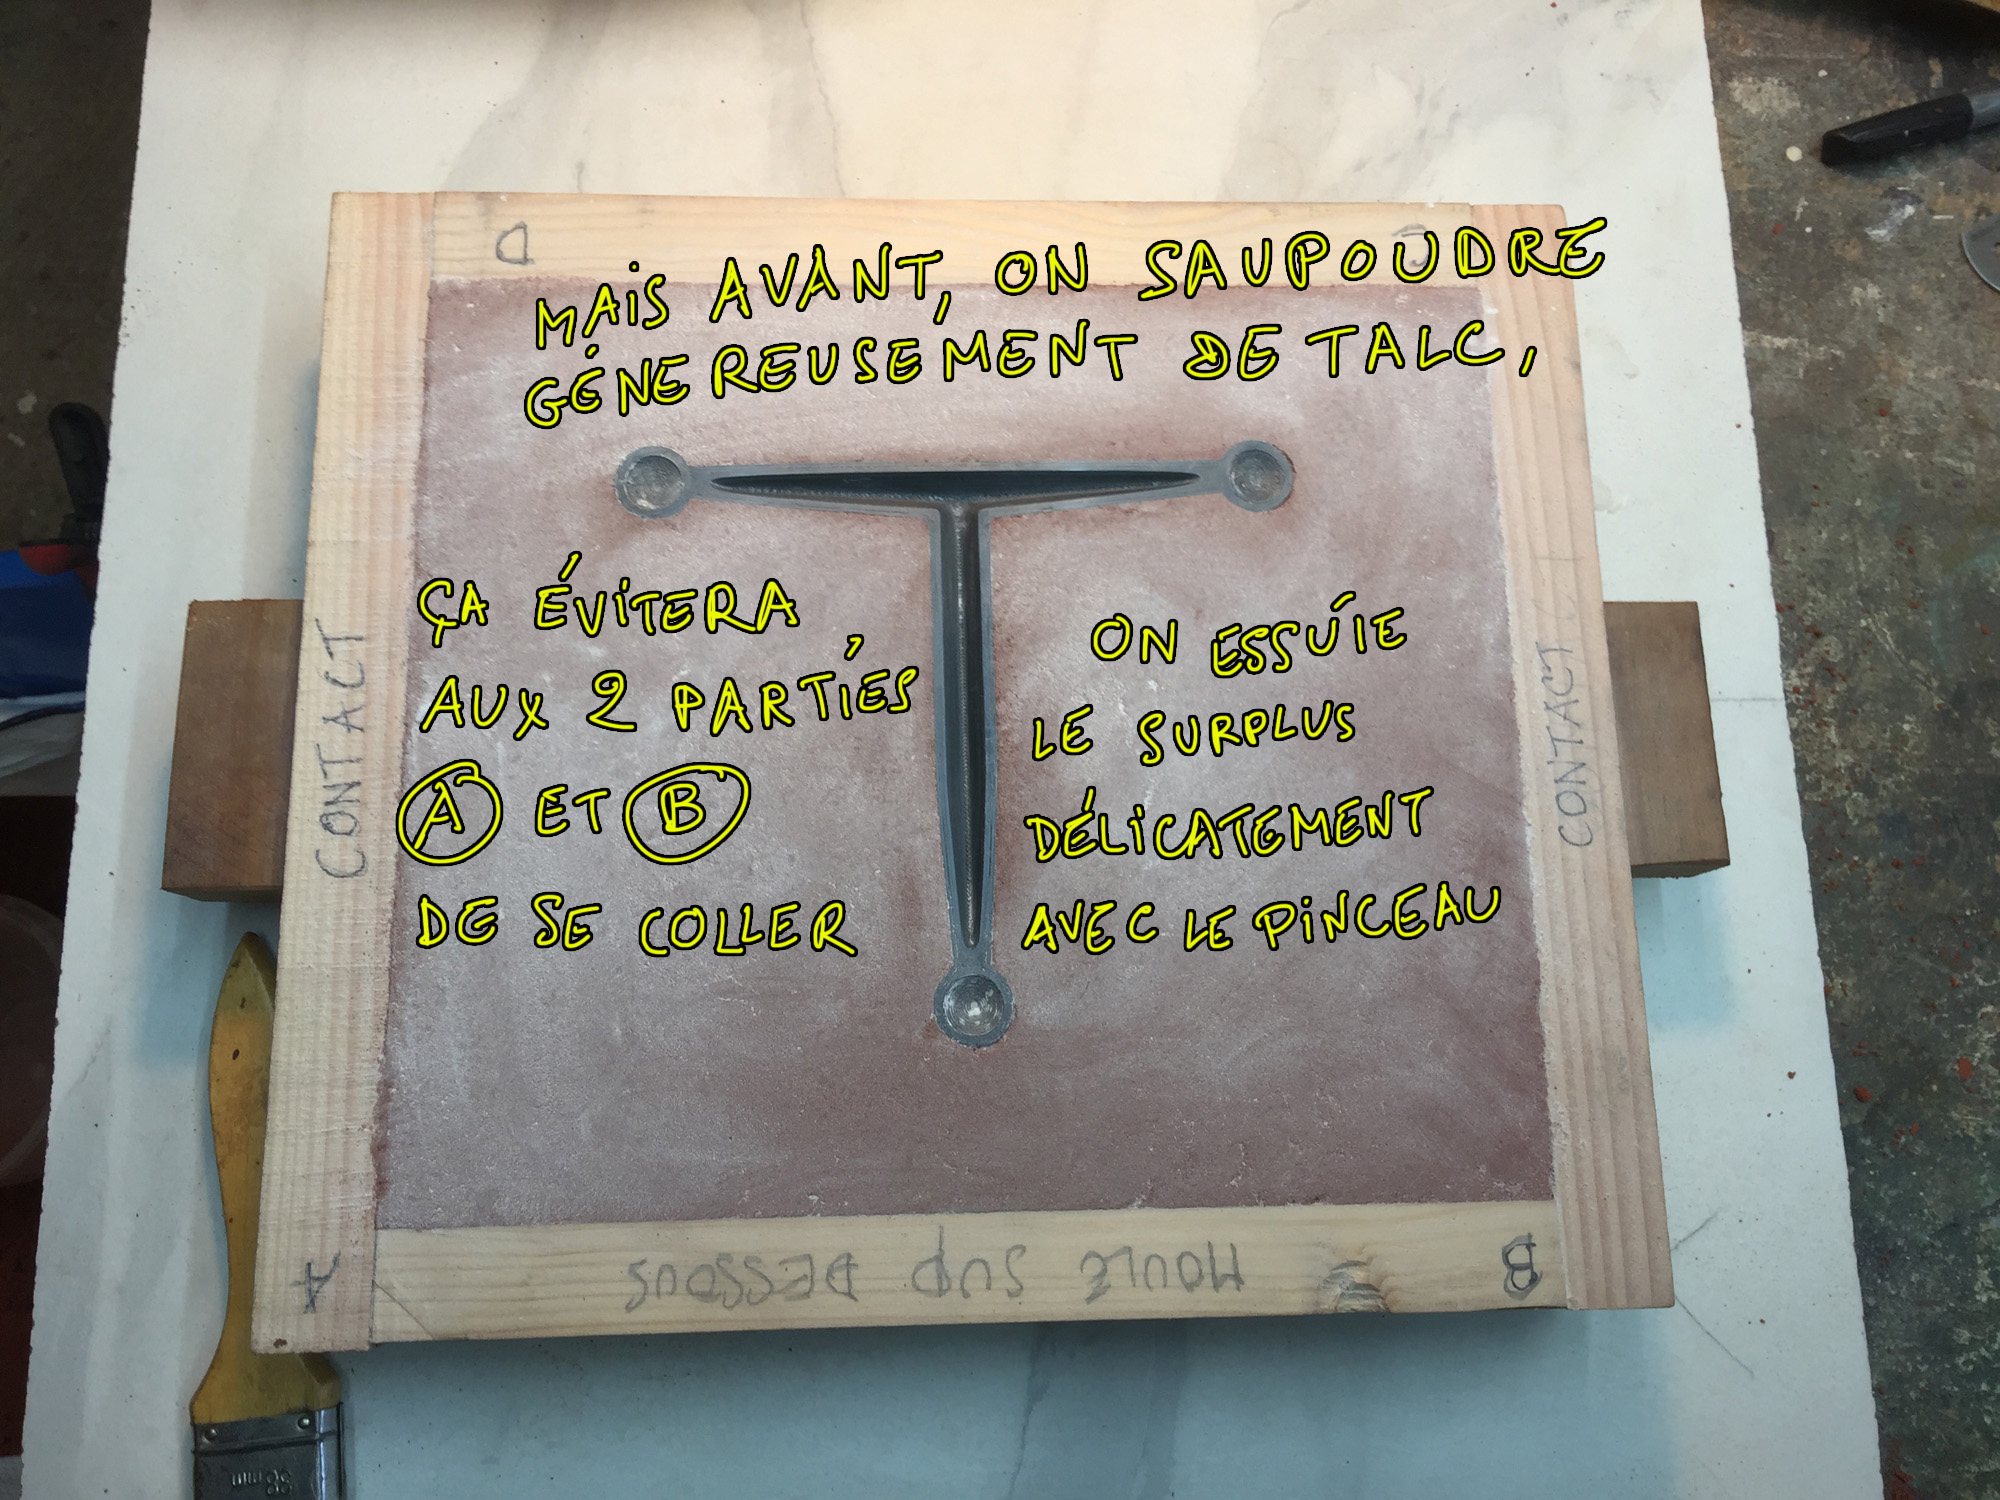 D
C
MAIS AVANT, ON SAUPOUDRE
GÉNEREUSEMENT DE TALC,
ÇA ÉVITERA
AUX 2 PARTIES,
A ET B
DE SE COLLER
ON ESSUIE
LE SURPLUS
DÉLICATEMENT
AVEC LE PINCEAU
CONTACT
CONTACT
A
MOULE SUP DESSOUS
B